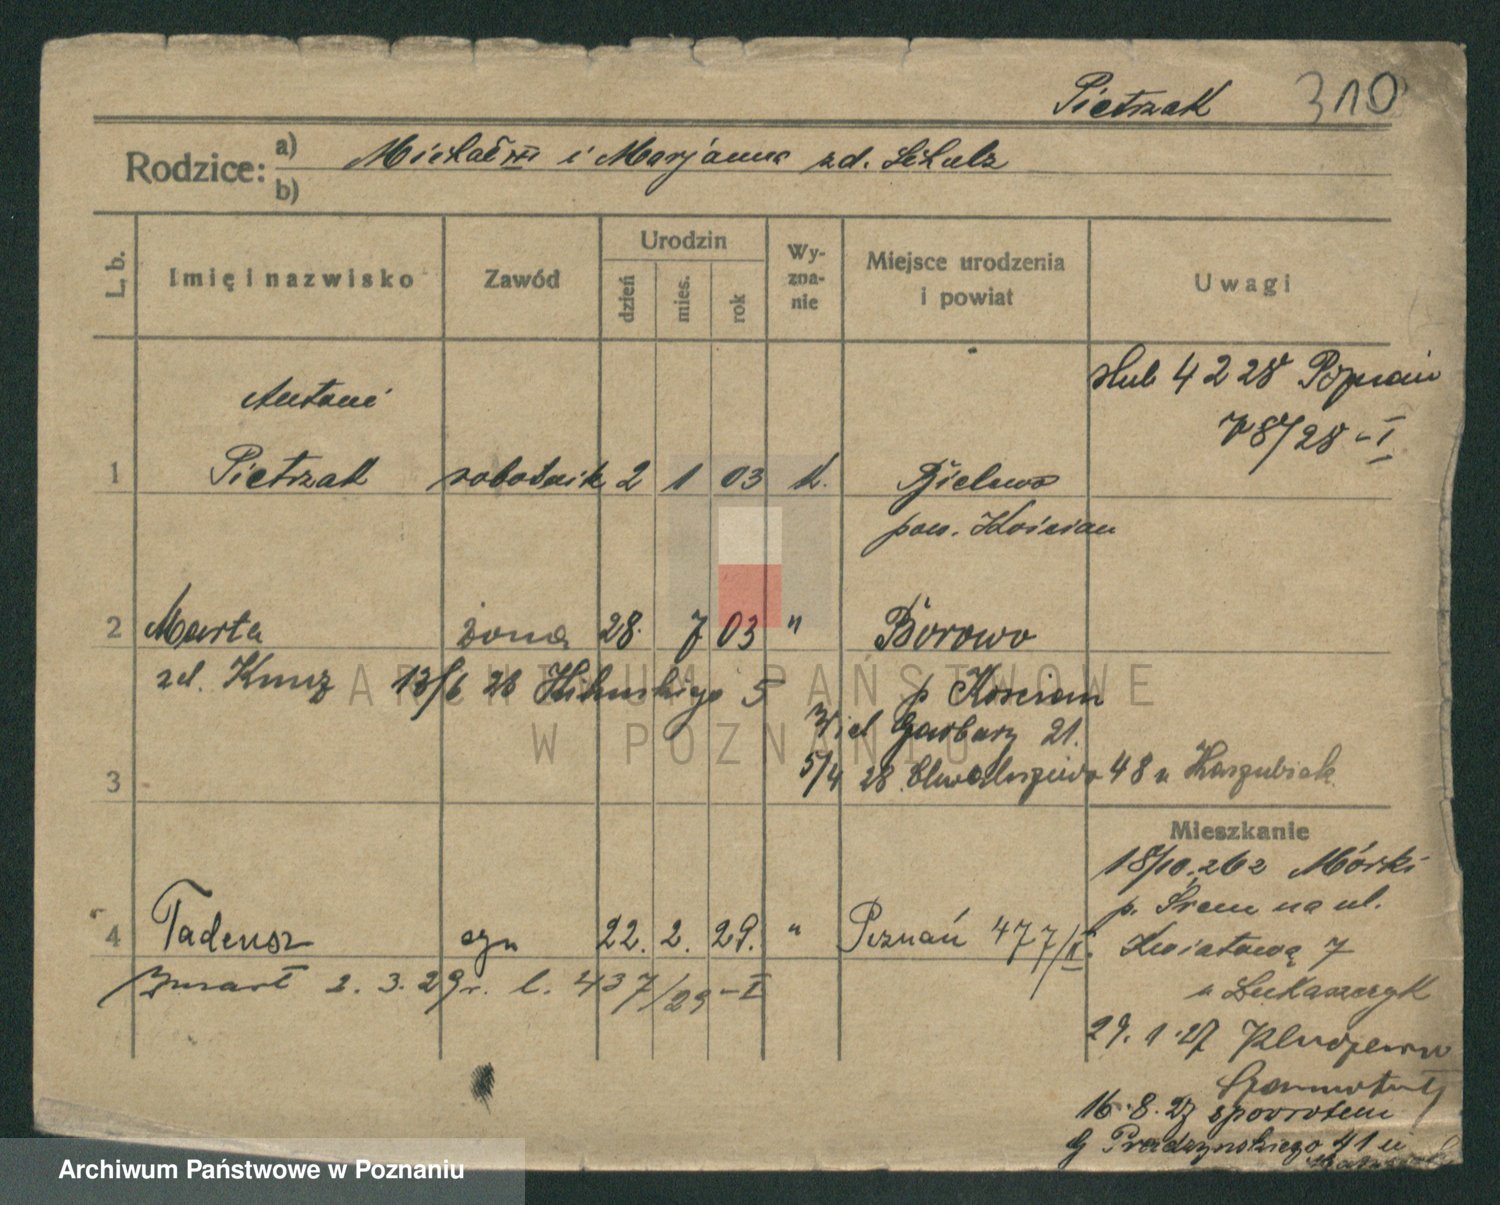 Pietrzak 310
Rodzice: a) Michał i Marjanna zd. Schulz
b)
L. b. Imię i nazwisko Zawód Urodzin dzień mies. rok Wy-zna-nie Miejsce urodzenia i powiat Uwagi
ślub 4 2 28 Poznań
78/28-I
Antoni
1 Pietrzak robotnik 2 1 03 k. Bielewo
pow. Kościan
2 Marta żona 28. 7 03 " Borowo
zd. Kunz 13/6 26 5 p Kościan
Wiel Garbary 21.
3 5/4 28. Chwaliszewo 48 u Kaszubiak
Mieszkanie
18/10. 262 Mórki
p. Śrem na ul.
4 Tadeusz syn 22. 2. 29. " Poznań 477/II. Kwiatową 7
zmarł 2. 3. 29r. l. 437/29-I u Łukaszczyk
29. 1. 27
16. 8. 27 spowrotem
G Prądzyńskiego 41 u
ARCHIWUM PAŃSTWOWE
W POZNANIU
Archiwum Państwowe w Poznaniu